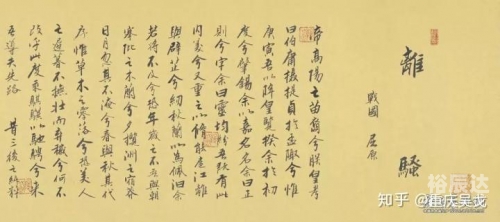 離騷
戰國 屈原
帝高陽之苗裔兮朕皇考
曰伯庸攝提貞於孟陬兮惟
庚寅吾以降皇覽揆余於初
度兮肇錫余以嘉名名余曰正
則兮字余曰靈均紛吾既有此
內美兮又重之以脩能扈江離
與辟芷兮紉秋蘭以為佩汩余
若將不及兮恐年歲之不吾與朝
搴阰之木蘭兮攬洲之宿莽
日月忽其不淹兮春與秋其代
序惟草木之零落兮恐美人
之遲暮不撫壯而棄穢兮何不
改乎此度乘騏驥以馳騁兮來
吾導夫先路 昔三後之
裕辰达
知乎 @重庆吴戈